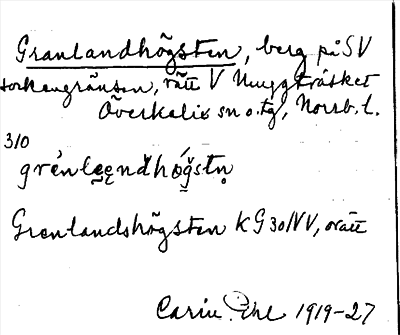 Granlandhögsten, berg på SV
sockengränsen, rätt V Muggträsket
Överkalix sn o. tg, Norrb. l.
310
grènleẹndhǿgstn̥
Grenlandshögsten KG30NV, orätt
Carin Ehl 1919-27